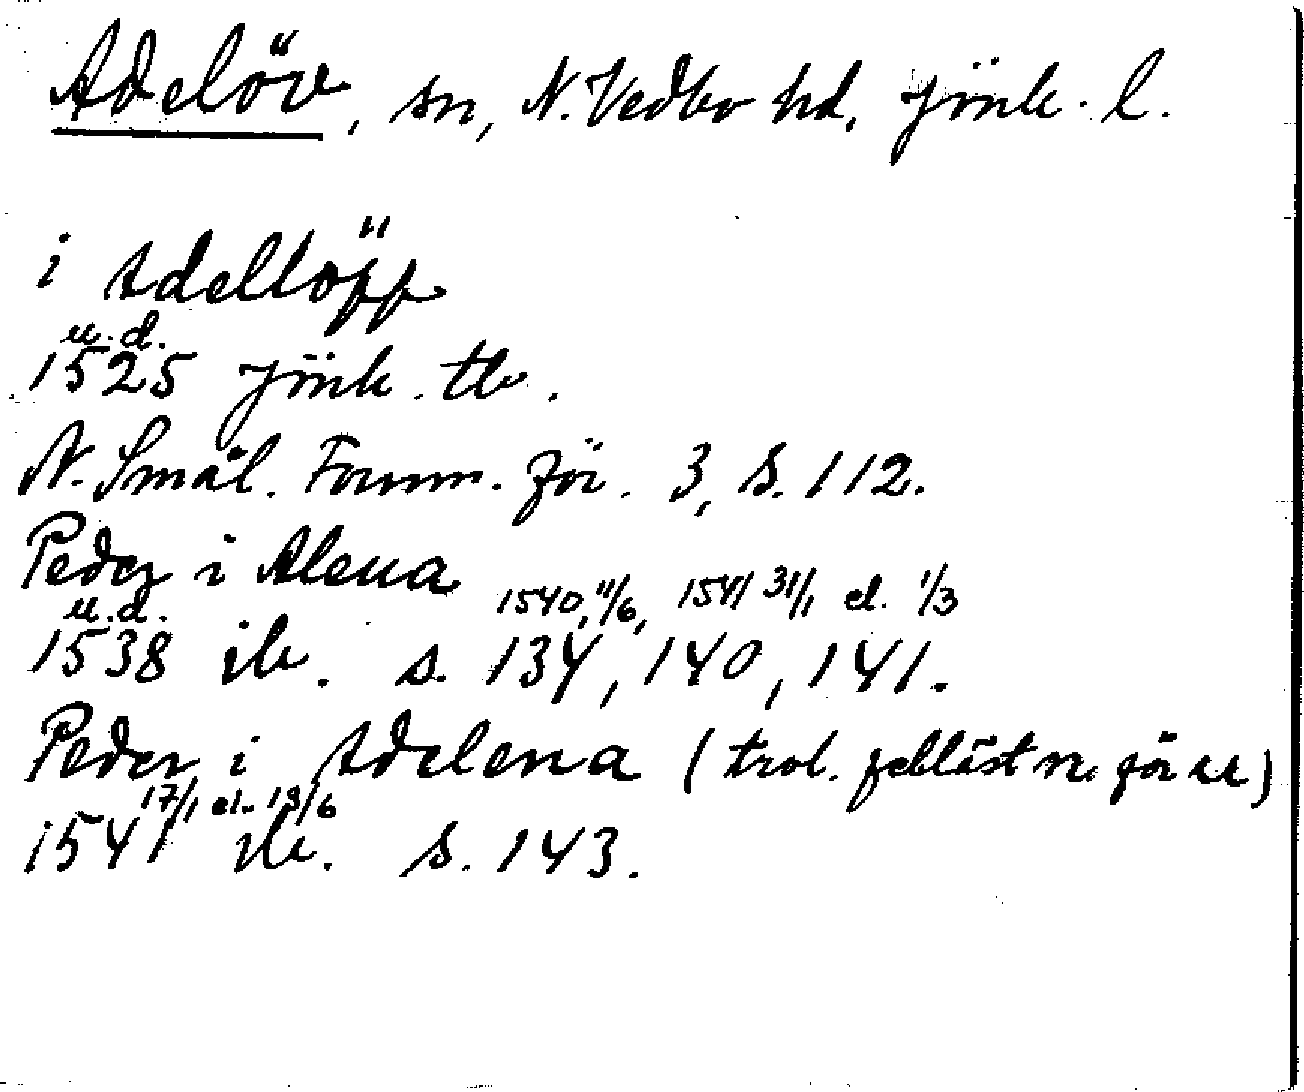 Adelöv, sn, N. Vedbo hd, Jönk. l.
i Adellöff
u.d.
1525 Jönk. tb.
N. Smål. Fornm. för. 3, S. 112.
Peder i Aleua
u.d. 1540, 11/6, 1541 31/1 el. 1/3
1538 ib. s. 134, 140, 141.
Peder i Adelena (trol. felläst n för u)
17/1 el. 19/6
1541 ib. s. 143.